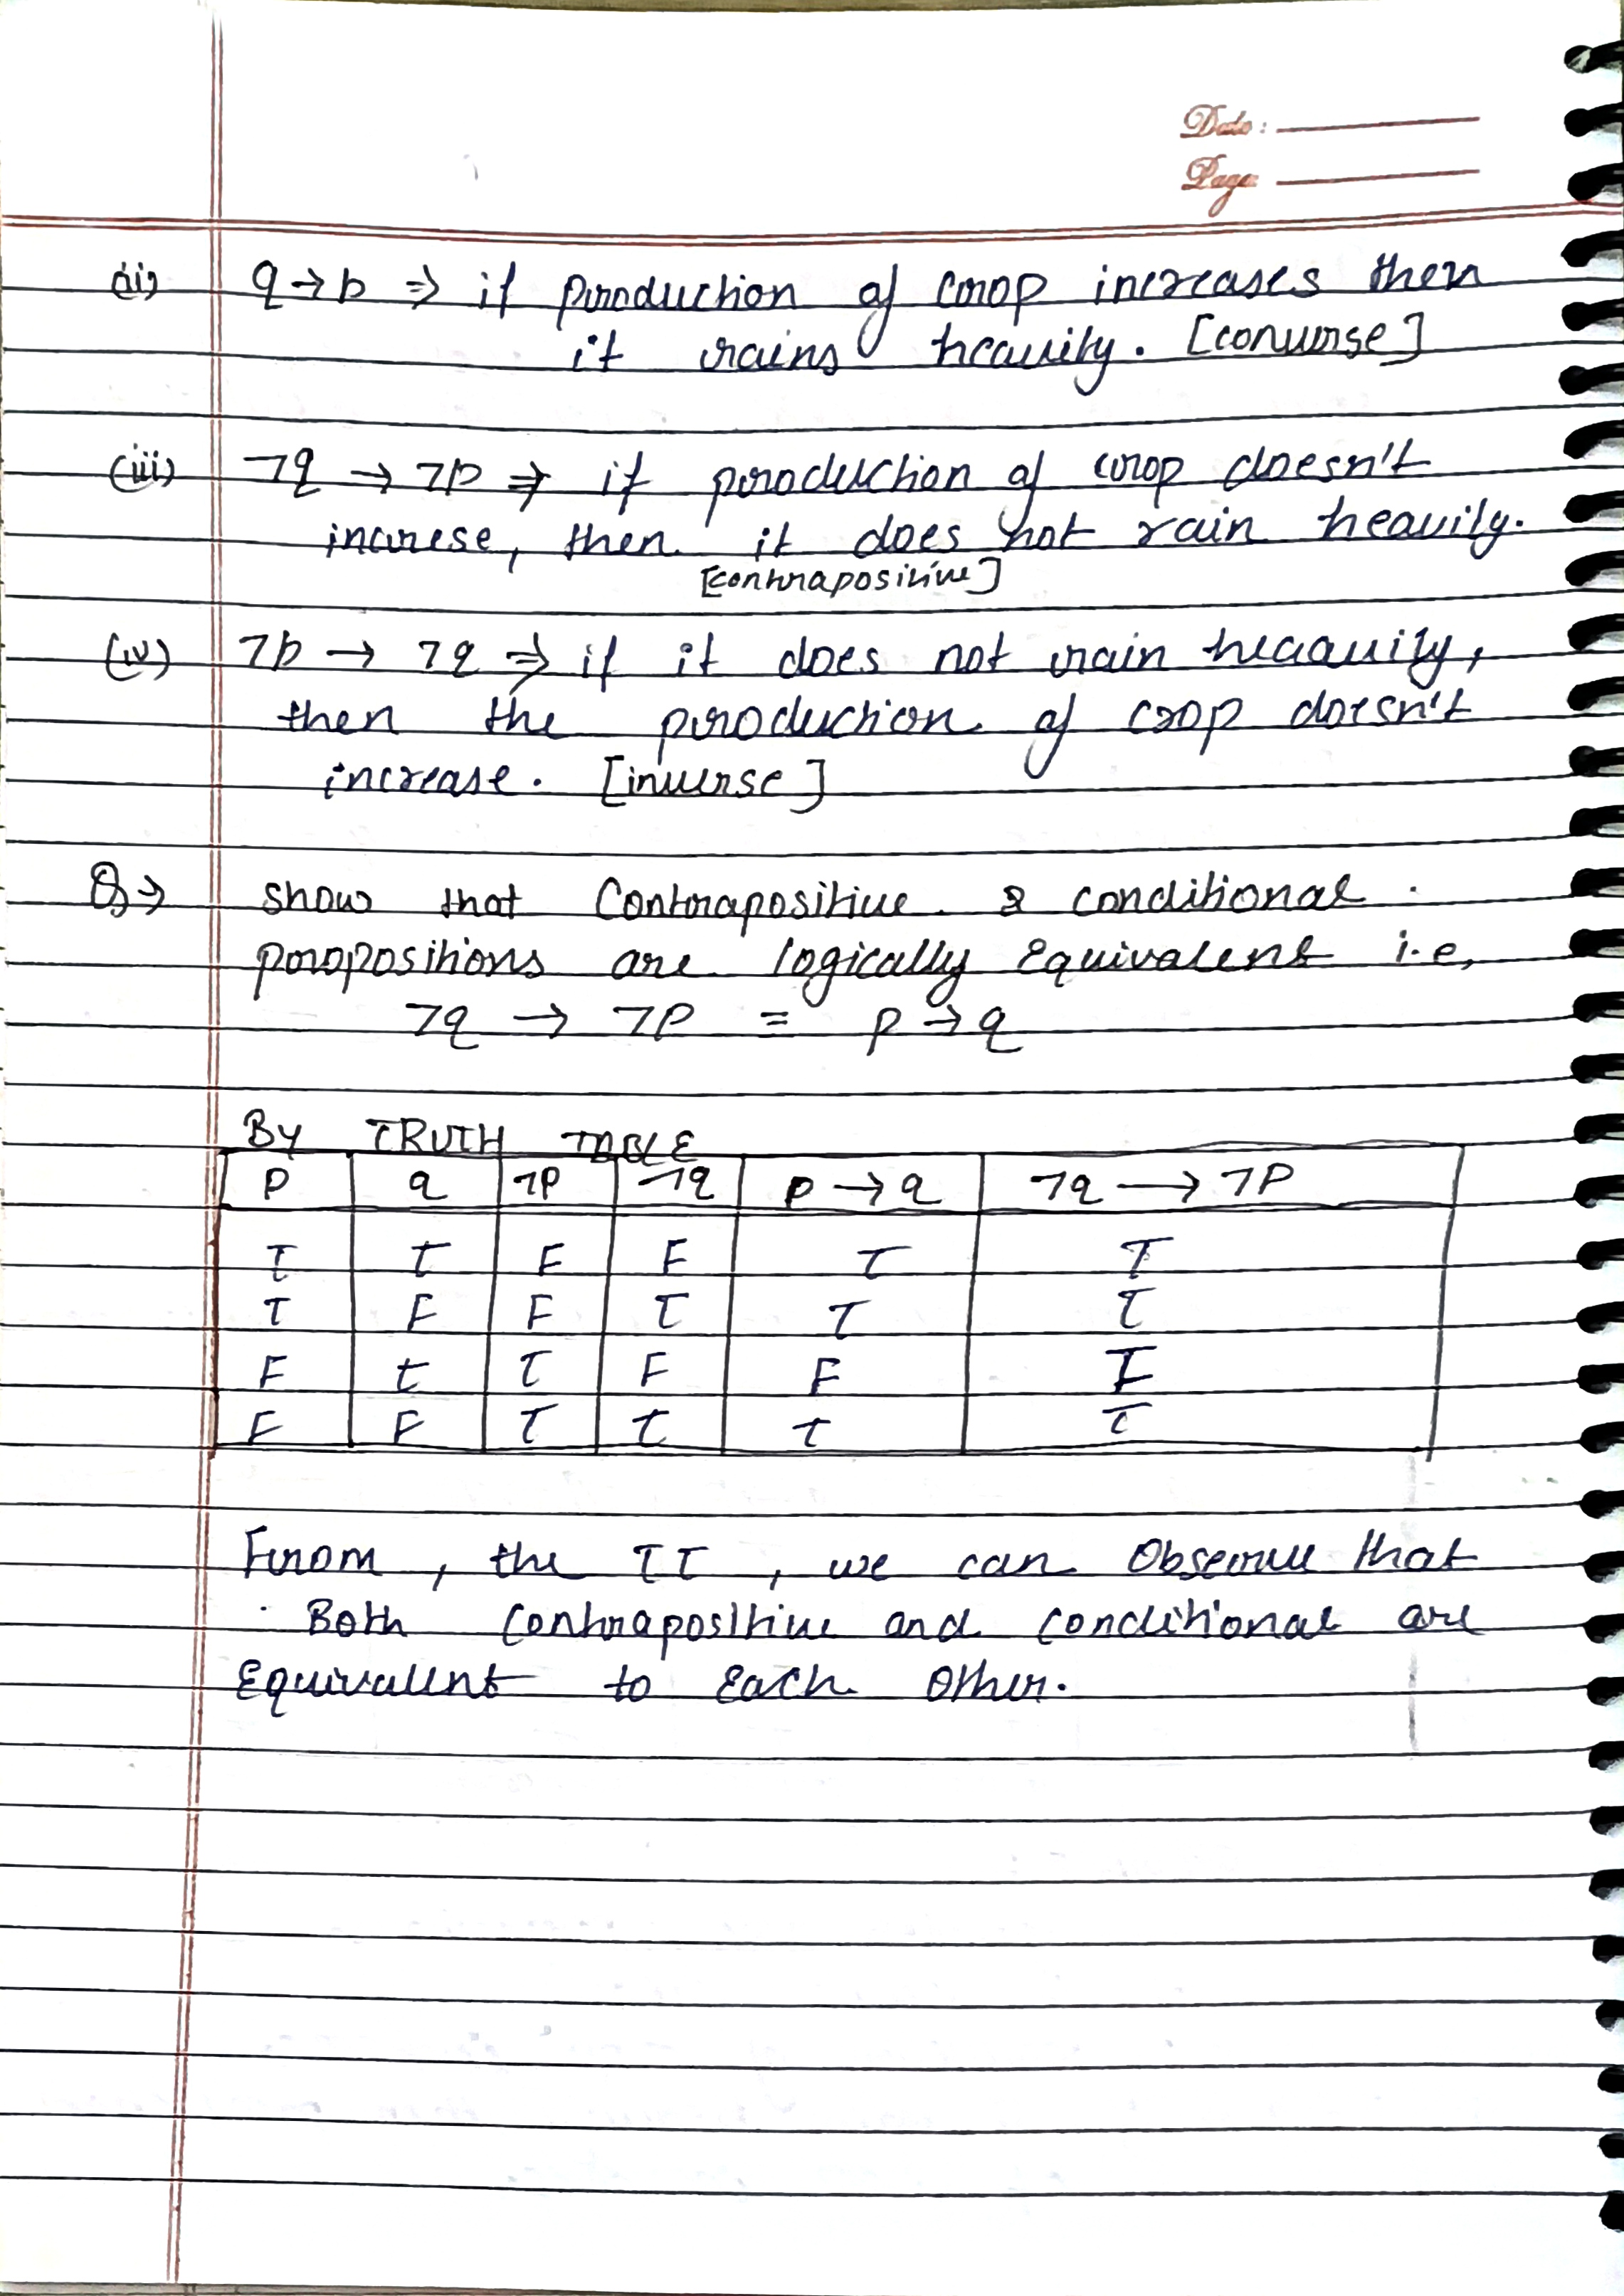 Date:
Page
(ii) q → p ⇒ if production of crop increases then
it rains heavily. [converse]
(iii) ¬q → ¬p ⇒ if production of crop doesn't
increse, then it does not rain heavily.
[contrapositive]
(iv) ¬p → ¬q ⇒ if it does not rain heaavily,
then the production of crop doesn't
increase. [inverse]
Q→ show that Contrapositive & conditional
propositions are logically Equivalent i.e,
¬q → ¬p = p → q
By TRUTH TABLE
P q ¬P ¬q p → q ¬q → ¬P
T t F F T T
T F F T T T
F t T F F F
F F T t t T
From, the TT, we can Observe that
Both Contrapositive and conditional are
Equivalent to Each Other.